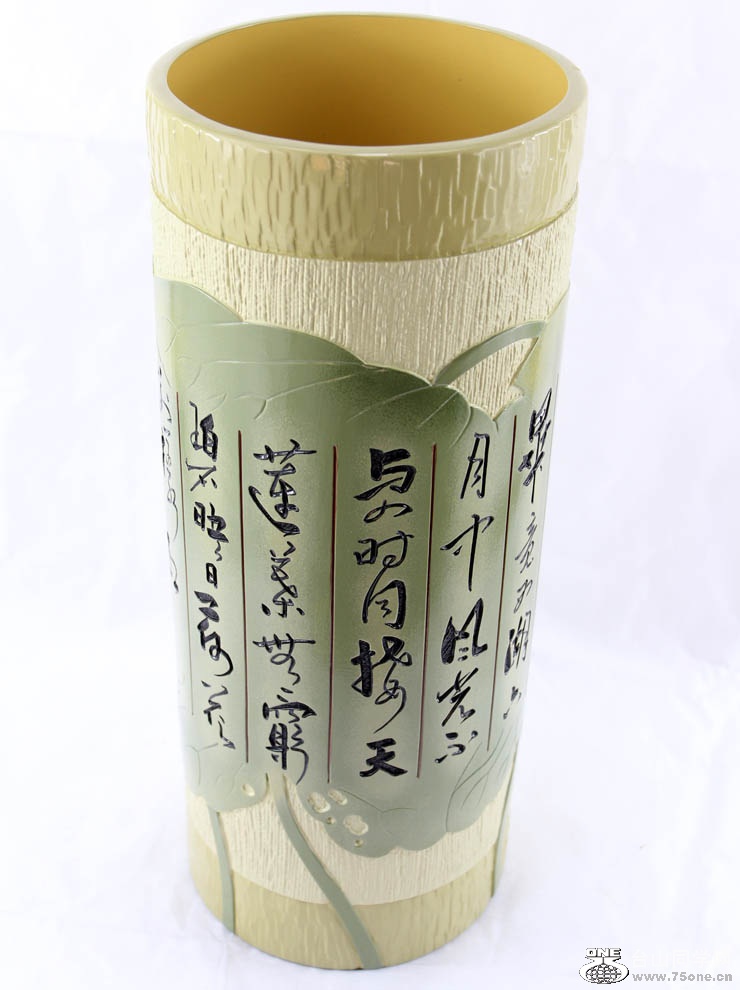 畢竟西湖六
月中风光不
与四时同接天
蓮葉無窮
碧映日荷花
ONE
www.75one.cn